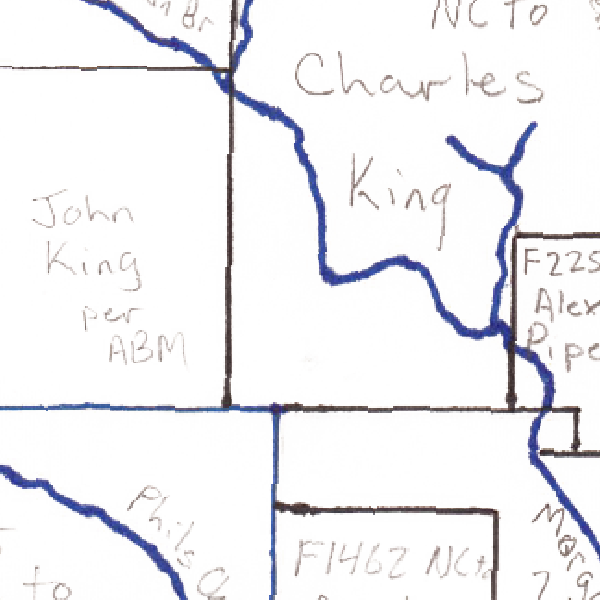 Br
NC to
Charles
King
John
King
per
ABM
F225
Alex
Pipe
Phils
to
F1462 NC to